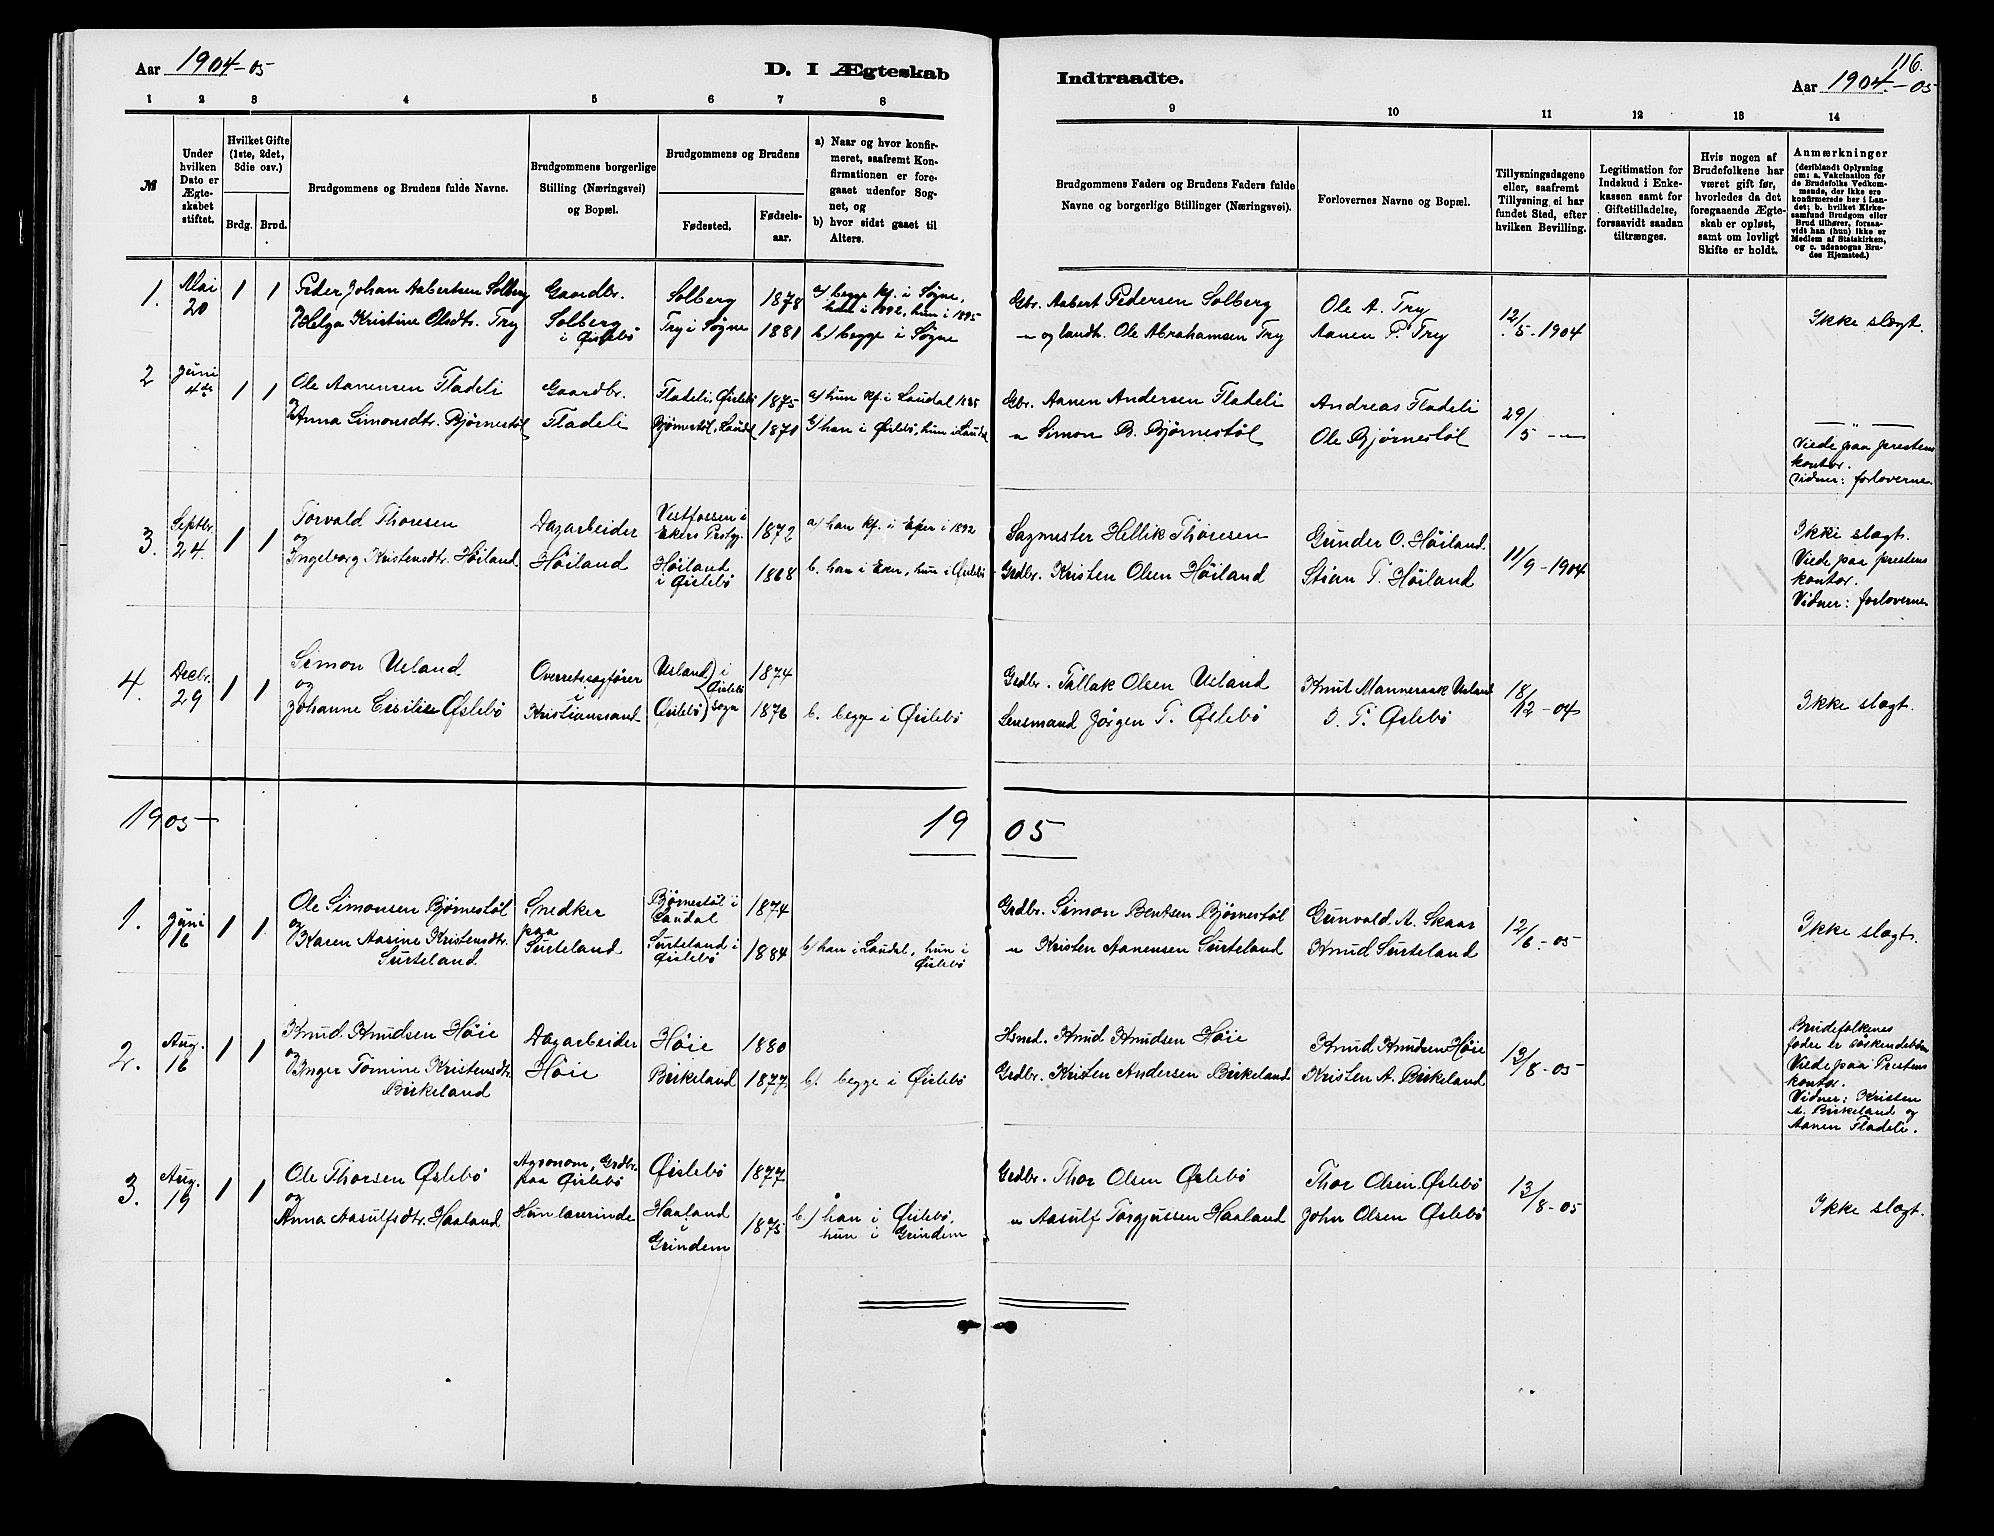 116.
Aar 1904-05
D. I Ægteskab
Indtraadte.
Aar 1904.-05
1 2 3 4 5 6 7 8 9 10 11 12 13 14
№
Under hvilken Dato er Ægteskabet stiftet.
Hvilket Gifte (1ste, 2det, 3die osv.)
Brdg. Brud.
Brudgommens og Brudens fulde Navne.
Brudgommens borgerlige Stilling (Næringsvei) og Bopæl.
Brudgommens og Brudens
Fødested. Fødsels-aar.
a) Naar og hvor konfirmeret, saafremt Konfirmationen er foregaaet udenfor Sognet, og
b) hvor sidst gaaet til Alters.
Brudgommens Faders og Brudens Faders fulde Navne og borgerlige Stillinger (Næringsvei).
Forlovernes Navne og Bopæl.
Tillysningsdagene eller, saafremt Tillysning ei har fundet Sted, efter hvilken Bevilling.
Legitimation for Indskud i Enkekassen samt for Giftetilladelse, forsaavidt saadan tiltrænges.
Hvis nogen af Brudefolkene har været gift før, hvorledes da det foregaaende Ægteskab er opløst, samt om lovligt Skifte er holdt.
Anmærkninger
(deriblandt Oplysning om: a. Vakcination for de Brudefolks Vedkommende, der ikke ere konfirmerede her i Landet; b. hvilket Kirkesamfund Brudgom eller Brud tilhører, forsaavidt han (hun) ikke er Medlem af Statskirken, og c. udensogns Brudes Hjemsted.)
1. Mai 20 1 1 Peder Johan Aabertsen Solberg
og Helga Kristine Olsdtr. Try
Gaardbr. Solberg i Øislebø
Solberg 1878
Try i Søgne 1881
a) begge kf. i Søgne, han i 1892, hun i 1895
b) begge i Søgne
Gbr. Aabert Pedersen Solberg
" og landh. Ole Abrahamsen Try
Ole A. Try
Aanen P. Try
12/5-1904
Ikke slægt.
2 Juni 4de 1 1 Ole Aanensen Fladeli
og Anna Simonsdtr. Bjørnestøl
Gaardbr. Fladeli
Fladeli. Øislebø 1875
Bjørnestøl, Laudal 1871
a) hun kf. i Laudal 1885
b) han i Øislebø, hun i Laudal
Gbr. Aanen Andersen Fladeli
" Simon B. Bjørnestøl
Andreas Fladeli
Ole Bjørnestøl
29/5 - "
— " —
Viede paa prestens kontor.
Vidner: forloverne
3. Septbr. 24. 1 1 Torvald Thoresen
og Ingeborg Kristensdtr. Høiland
Dagarbeider Høiland
Vestfossen i Ekers Prstgj. 1872
Høiland i Øislebø 1868
a) han kf. i Eker i 1892
b. han i Eker, hun i Øislebø
Sagmester Hellik Thoresen
Grdbr. Kristen Olsen Høiland
Gunder O. Høiland.
Stian T. Høiland
11/9-1904
Ikke slægt.
Viede paa prestens kontor.
Vidner: forloverne
4. Decbr. 29 1 1 Simon Usland
og Johanne Cecilie Øslebø
Overretssagfører i Kristianssand
Usland) i Øislebø 1874
Øislebø) sogn 1876
b. begge i Øislebø
Grdbr. Tallak Olsen Usland
Lensmand Jørgen T. Øslebø
Knut Manneraak Usland
T. Øslebø
18/12-04
Ikke slægt.
1905-
19 05
1. Juni 16 1 1 Ole Simonsen Bjørnestøl
og Karen Aasine Kristensdtr. Surteland
Snedker paa Surteland
Bjørnestøl i Laudal 1874
Surteland i Øislebø 1884
b) han i Laudal, hun i Øislebø
Grdbr. Simon Bentsen Bjørnestøl
" Kristen Aanensen Surteland
Gunvald A. Skaar
Knud Surteland
12/6-05
Ikke slægt.
2. Aug. 16 1 1 Knud Knudsen Høie
og Inger Tomine Kristensdtr. Birkeland
Dagarbeider Høie
Høie 1880
Birkeland 1877
b. begge i Øislebø
Hsmd. Knud Knudsen Høie
Grdbr. Kristen Andersen Birkeland
Knud Knudsen Høie
Kristen A. Birkeland
13/8-05
Brudefolkenes fødre er søskendebørn
Viede paa Prestens kontor.
Vidner: Kristen A. Birkeland og Aanen Fladeli.
3. Aug. 19 1 1 Ole Thorsen Øslebø
og Anna Aasulfsdtr. Haaland
Agronom, Grdbr. paa Øislebø
Hun lærerinde
Øislebø 1877
Haaland i Grindem 1875
b.) han i Øislebø, hun i Grindem
Grdbr. Thor Olsen Øslebø
" Aasulf Torgjussen Haaland
Thor Olsen Øslebø
John Olsen Øslebø
13/8-05
Ikke slægt.